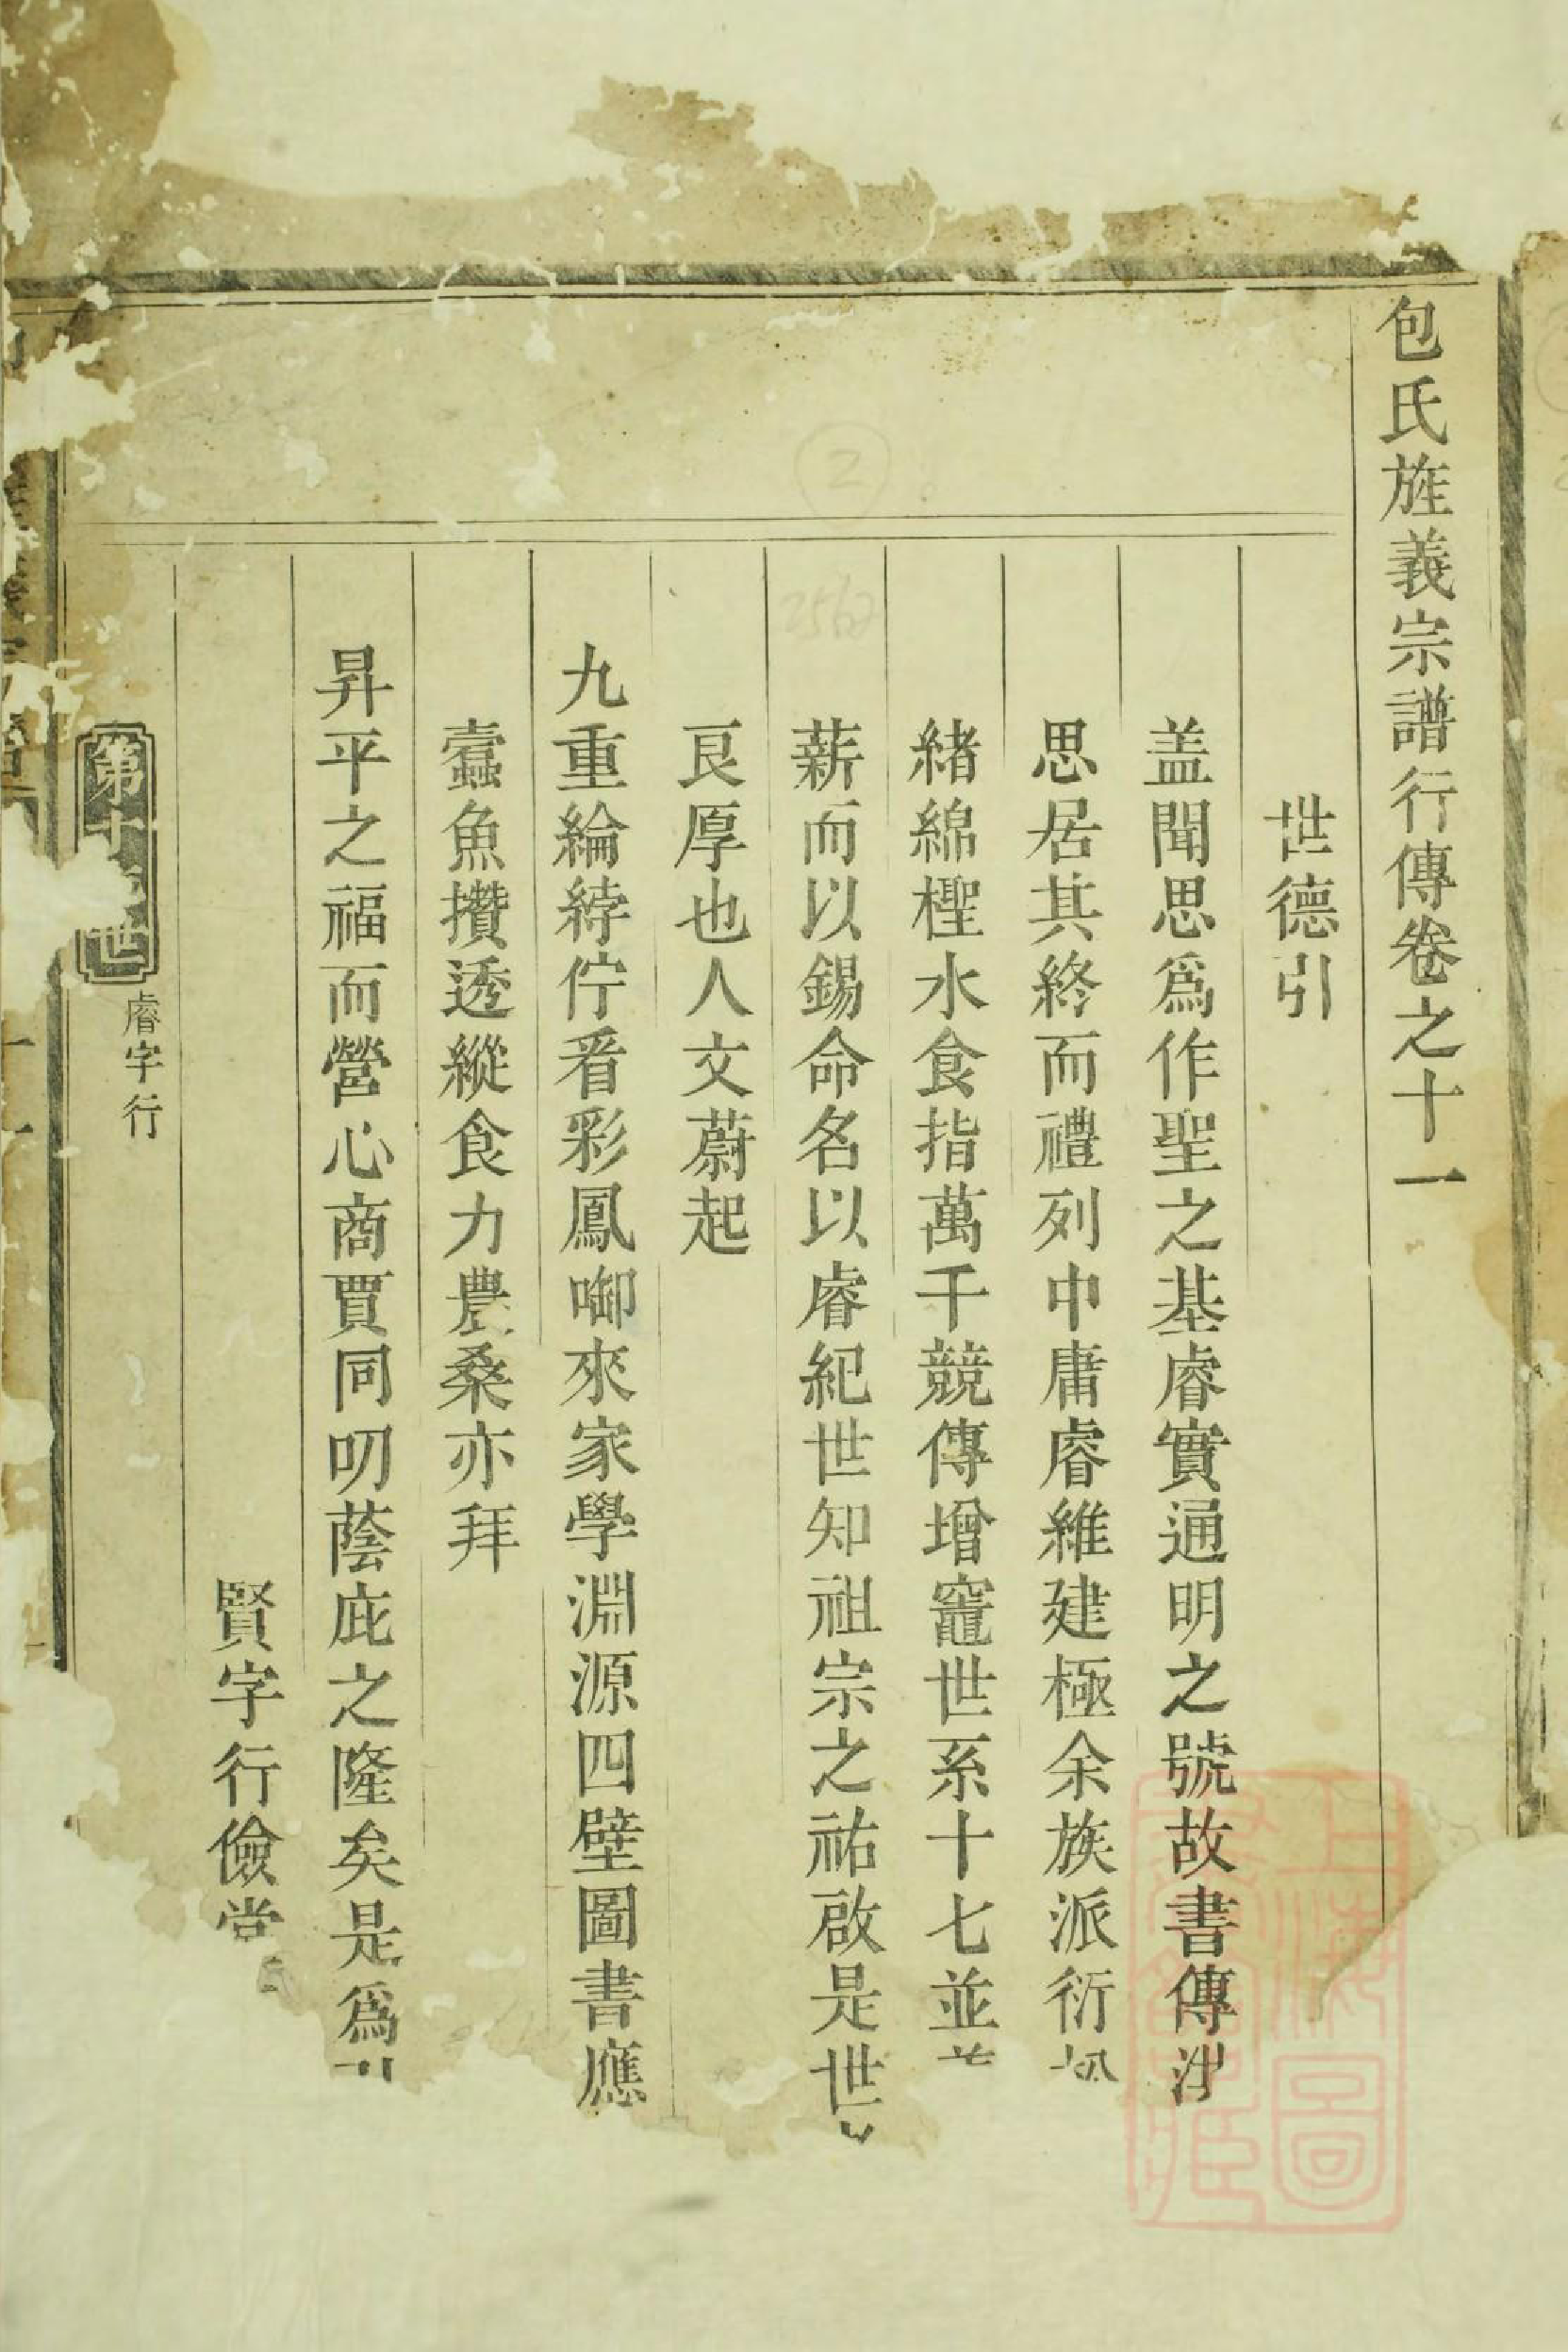 包氏旌義宗譜行傳卷之十一
世德引
盖聞思爲作聖之基睿實通明之號故書傳洪
思居其終而禮列中庸睿維建極余族派衍
緒綿檉水食指萬千競傳增竈世系十七並
薪而以錫命名以睿紀世知祖宗之祐啟是世
艮厚也人文蔚起
九重綸綍佇看彩鳳啣來家學淵源四壁圖書應
蠧魚攢透縱食力農桑亦拜
昇平之福而營心商賈同叨蔭庇之隆矣是爲引
賢字行儉堂
第十世
睿字行
2
2562
上海圖書館藏